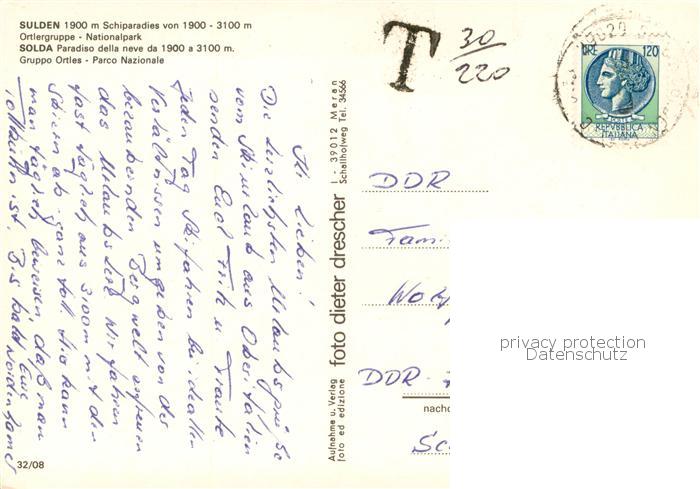 SULDEN 1900 m Schiparadies von 1900 - 3100 m
Ortlergruppe - Nationalpark
SOLDA Paradiso della neve da 1900 a 3100 m.
Gruppo Ortles - Parco Nazionale
T 30/220
LIRE 120
POSTE
REPVBBLICA
ITALIANA
Ihr Lieben!
Die herzlichsten Urlaubsgrüße
vom Skiurlaub aus Oberitalien
senden Euch u. Traute
Jeden Tag Skifahren bei idealen
Verhältnissen umgeben von der
berauschenden Bergwelt
das Urlaubs Wir fahren
fast täglich aus 3100 m mit den
Skiern ab, ganz toll. Hier kann
man täglich beweisen, daß man
ist. Bis bald Eure
Nordenhamer
Aufnahme u. Verlag
foto ed edizione
foto dieter drescher
I - 39012 Meran
Schallhofweg Tel. 34566
DDR
Fam.
DDR
nachd
32/08
privacy protection
Datenschutz